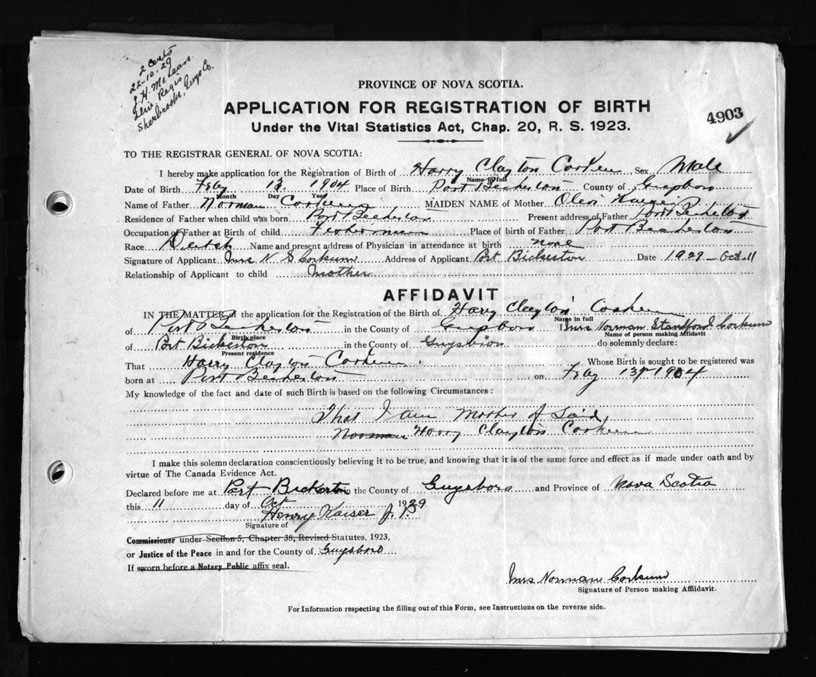 2 Cents
22-10-29
J. H. McLean
Regis
Sherbrooke, Guys Co.
PROVINCE OF NOVA SCOTIA.
APPLICATION FOR REGISTRATION OF BIRTH
4903
Under the Vital Statistics Act, Chap. 20, R. S. 1923.
TO THE REGISTRAR GENERAL OF NOVA SCOTIA:
I hereby make application for the Registration of Birth of Harry Clayton Corkum Sex Male
Name in full
Date of Birth Feby 13 1904 Place of Birth Port Beckerton County of Guysboro
Month Day Year
Name of Father Norman Corkum MAIDEN NAME of Mother
Residence of Father when child was born Port Beckerton Present address of Father Port Beckerton
Occupation of Father at Birth of child Fisherman Place of birth of Father Port Beckerton
Race Dutch Name and present address of Physician in attendance at birth none
Signature of Applicant Mrs N S Corkum Address of Applicant Port Bickerton Date 1929 - Oct 11
Relationship of Applicant to child Mother
AFFIDAVIT
IN THE MATTER of the application for the Registration of Birth of Harry Clayton Corkum
Name in full
of Port Beckerton in the County of Guysboro I Mrs Norman Corkum
Birth place Name of person making Affidavit
of Port Bickerton in the County of do solemnly declare:
Present residence
That Harry Clayton Corkum Whose Birth is sought to be registered was
born at Port Beckerton on Feby 13 1904
My knowledge of the fact and date of such Birth is based on the following Circumstances:
That I am Mother of Said
Norman Harry Clayton Corkum
I make this solemn declaration conscientiously believing it to be true, and knowing that it is of the same force and effect as if made under oath and by
virtue of The Canada Evidence Act.
Declared before me at Port Bickerton in the County of Guysboro and Province of Nova Scotia
this 11 day of Oct 1929
Henry Kaiser J.P.
Signature of
Commissioner under Section 5, Chapter 38, Revised Statutes, 1923,
or Justice of the Peace in and for the County of Guysboro
If sworn before a Notary Public affix seal.
Mrs Norman Corkum
Signature of Person making Affidavit.
For Information respecting the filling out of this Form, see Instructions on the reverse side.